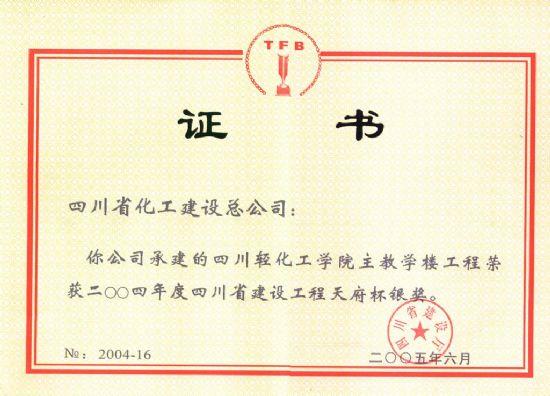 TFB
证 书
四川省化工建设总公司：
你公司承建的四川轻化工学院主教学楼工程荣
获二〇〇四年度四川省建设工程天府杯银奖。
四川省建设厅
№： 2004-16
二〇〇五年六月